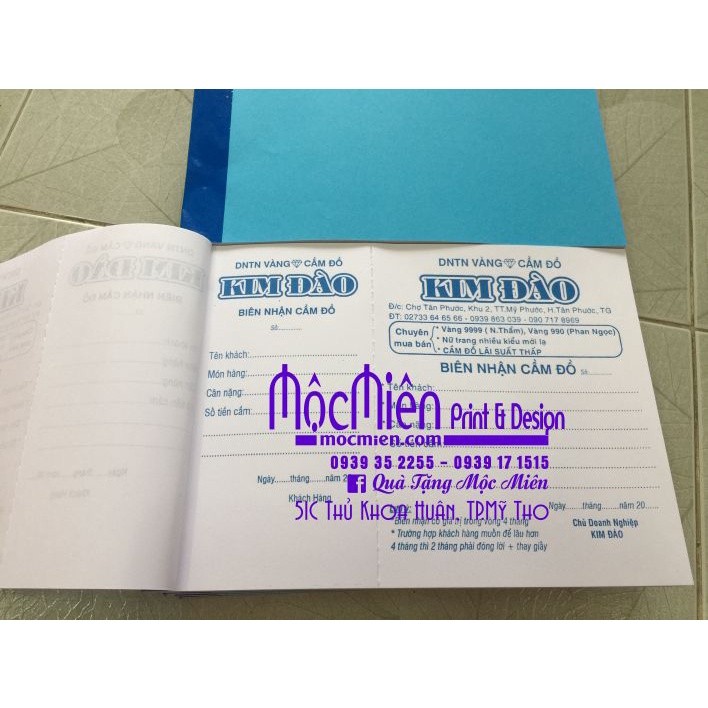 DNTN VÀNG CẦM ĐỒ
KIM ĐÀO
BIÊN NHẬN CẦM ĐỒ
Số:
Tên khách:
Món hàng:
Cân nặng:
Số tiền cầm:
Ngày.......tháng.......năm 20
Khách Hàng
DNTN VÀNG CẦM ĐỒ
KIM ĐÀO
Đ/c: Chợ Tân Phước, Khu 2, TT.Mỹ Phước, H.Tân Phước, TG
ĐT: 02733 64 65 66 - 0939 863 039 - 090 717 8969
Chuyên mua bán
* Vàng 9999 ( N.Thẩm), Vàng 990 (Phan Ngọc)
* Nữ trang nhiều kiểu mới lạ
* CẦM ĐỒ LÃI SUẤT THẤP
BIÊN NHẬN CẦM ĐỒ Số:
Tên khách:
Món hàng:
Cân nặng:
Số tiền cầm:
Ngày.......tháng.......năm 20......
Biên nhận có giá trị trong vòng 4 tháng
* Trường hợp khách hàng muốn để lâu hơn
4 tháng thì 2 tháng phải đóng lời + thay giấy
Chủ Doanh Nghiệp
KIM ĐÀO
MộcMiên Print & Design
mocmien.com
0939 35 2255 - 0939 17 1515
Quà Tặng Mộc Miên
51C Thủ Khoa Huân, TP.Mỹ Tho
DNTN VÀNG CẦM ĐỒ
KIM ĐÀO
BIÊN NHẬN CẦM ĐỒ